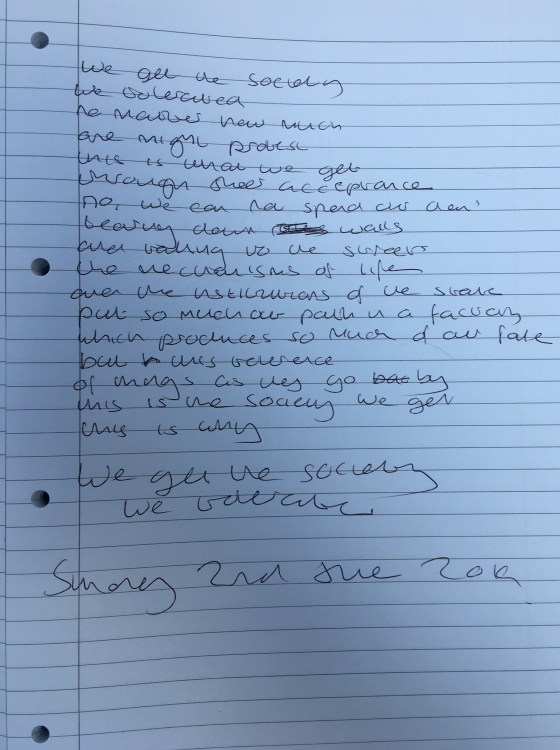 We get the society
we tolerated
no matter how much
one might protest
this is what we get
through sheer acceptance
No, we can not spend our
tearing down walls
and taking to the streets
the mechanisms of life
and the institutions of the state
put so much our path in a factory
which produces so much of our fate
but this tolerance
of things as they go by
this is the society we get
this is why
We get the society
we tolerate.
Sunday 2nd June 2019